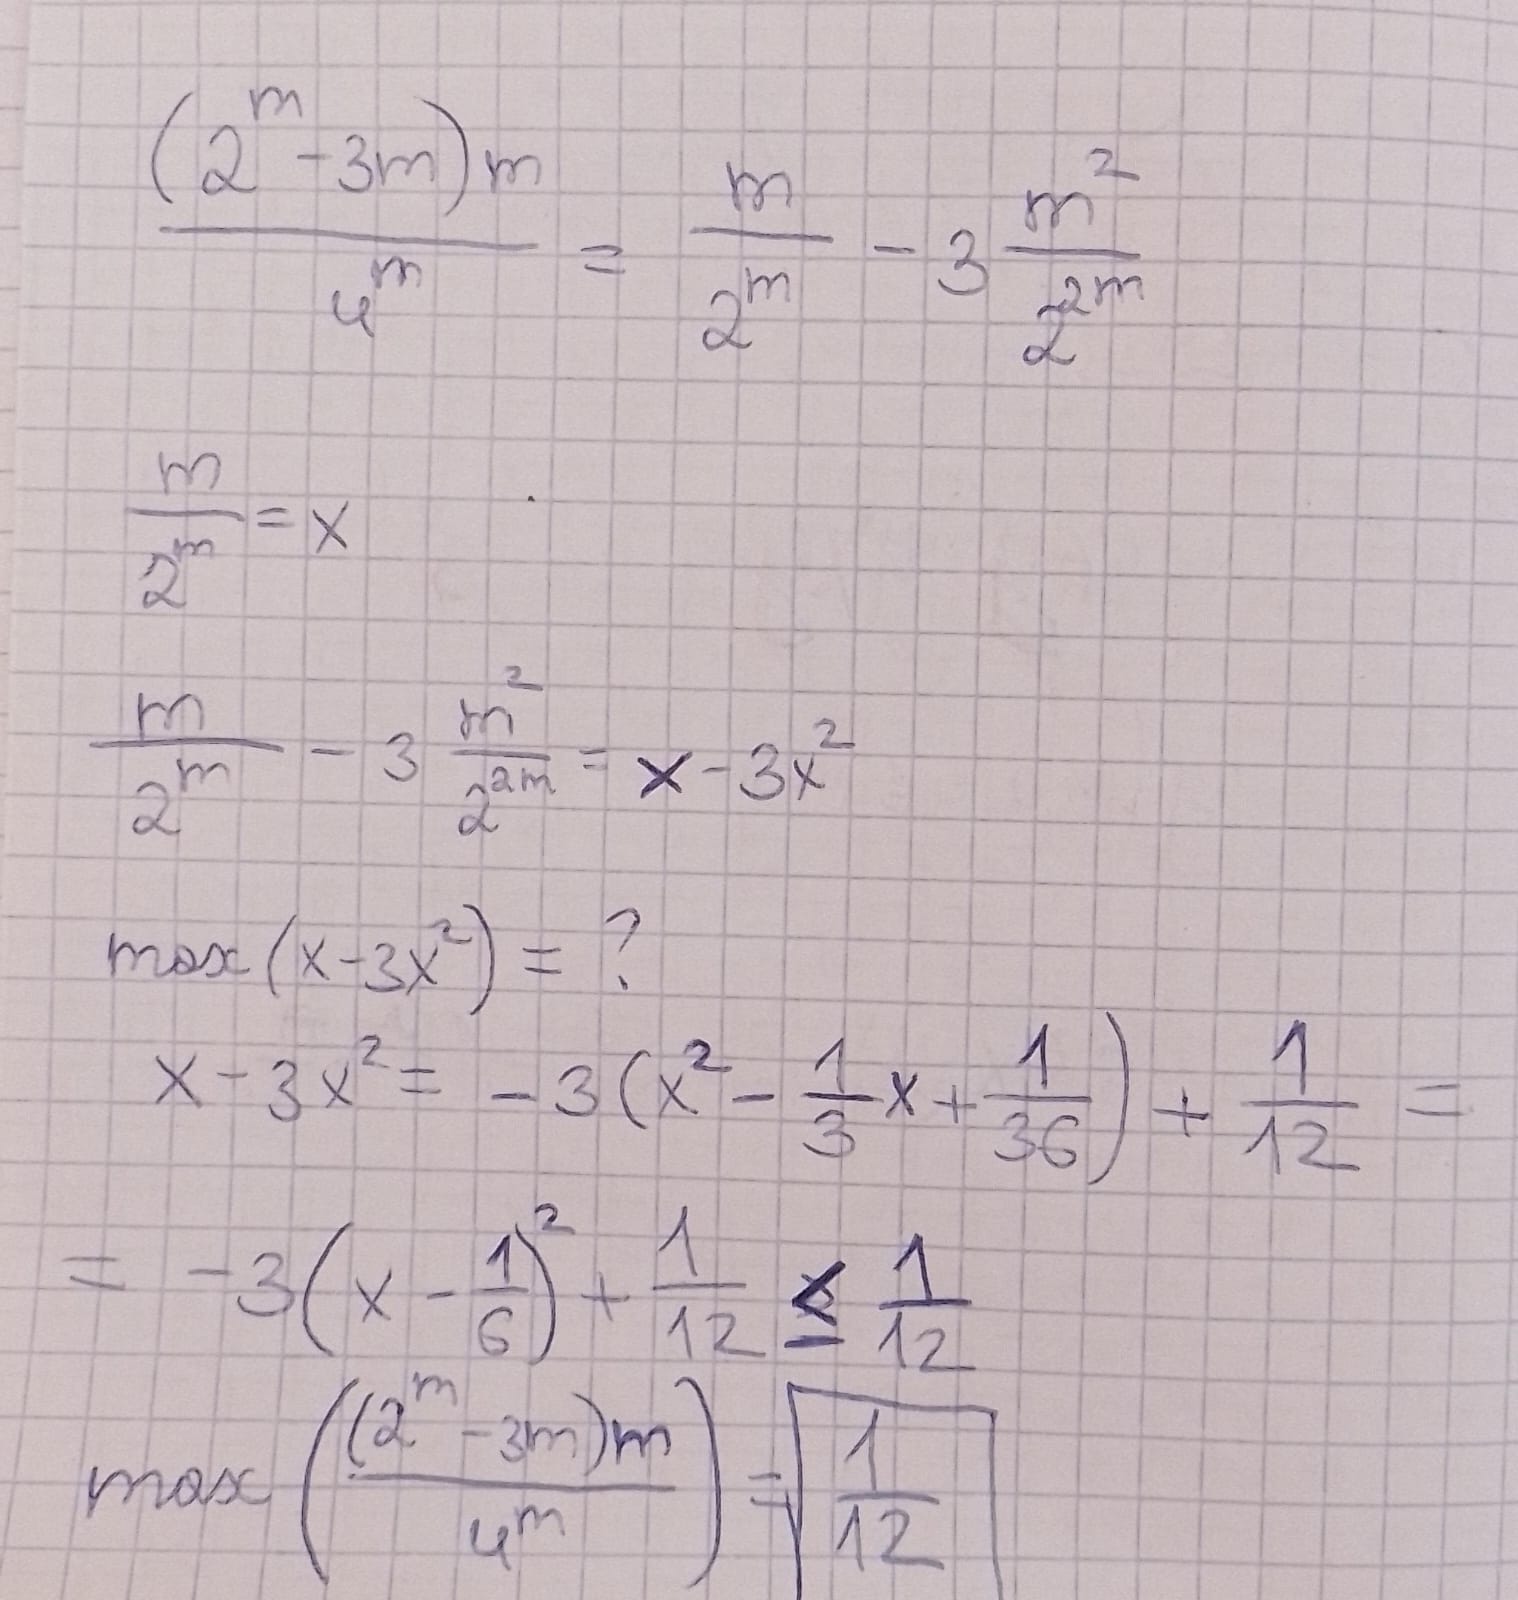 ((2^m - 3m)m)/4^m = m/2^m - 3 m^2/2^(2m)
m/2^m = x
m/2^m - 3 m^2/2^(2m) = x - 3x^2
max(x - 3x^2) = ?
x - 3x^2 = -3(x^2 - 1/3 x + 1/36) + 1/12 =
= -3(x - 1/6)^2 + 1/12 ≤ 1/12
max(((2^m - 3m)m)/4^m) = 1/12